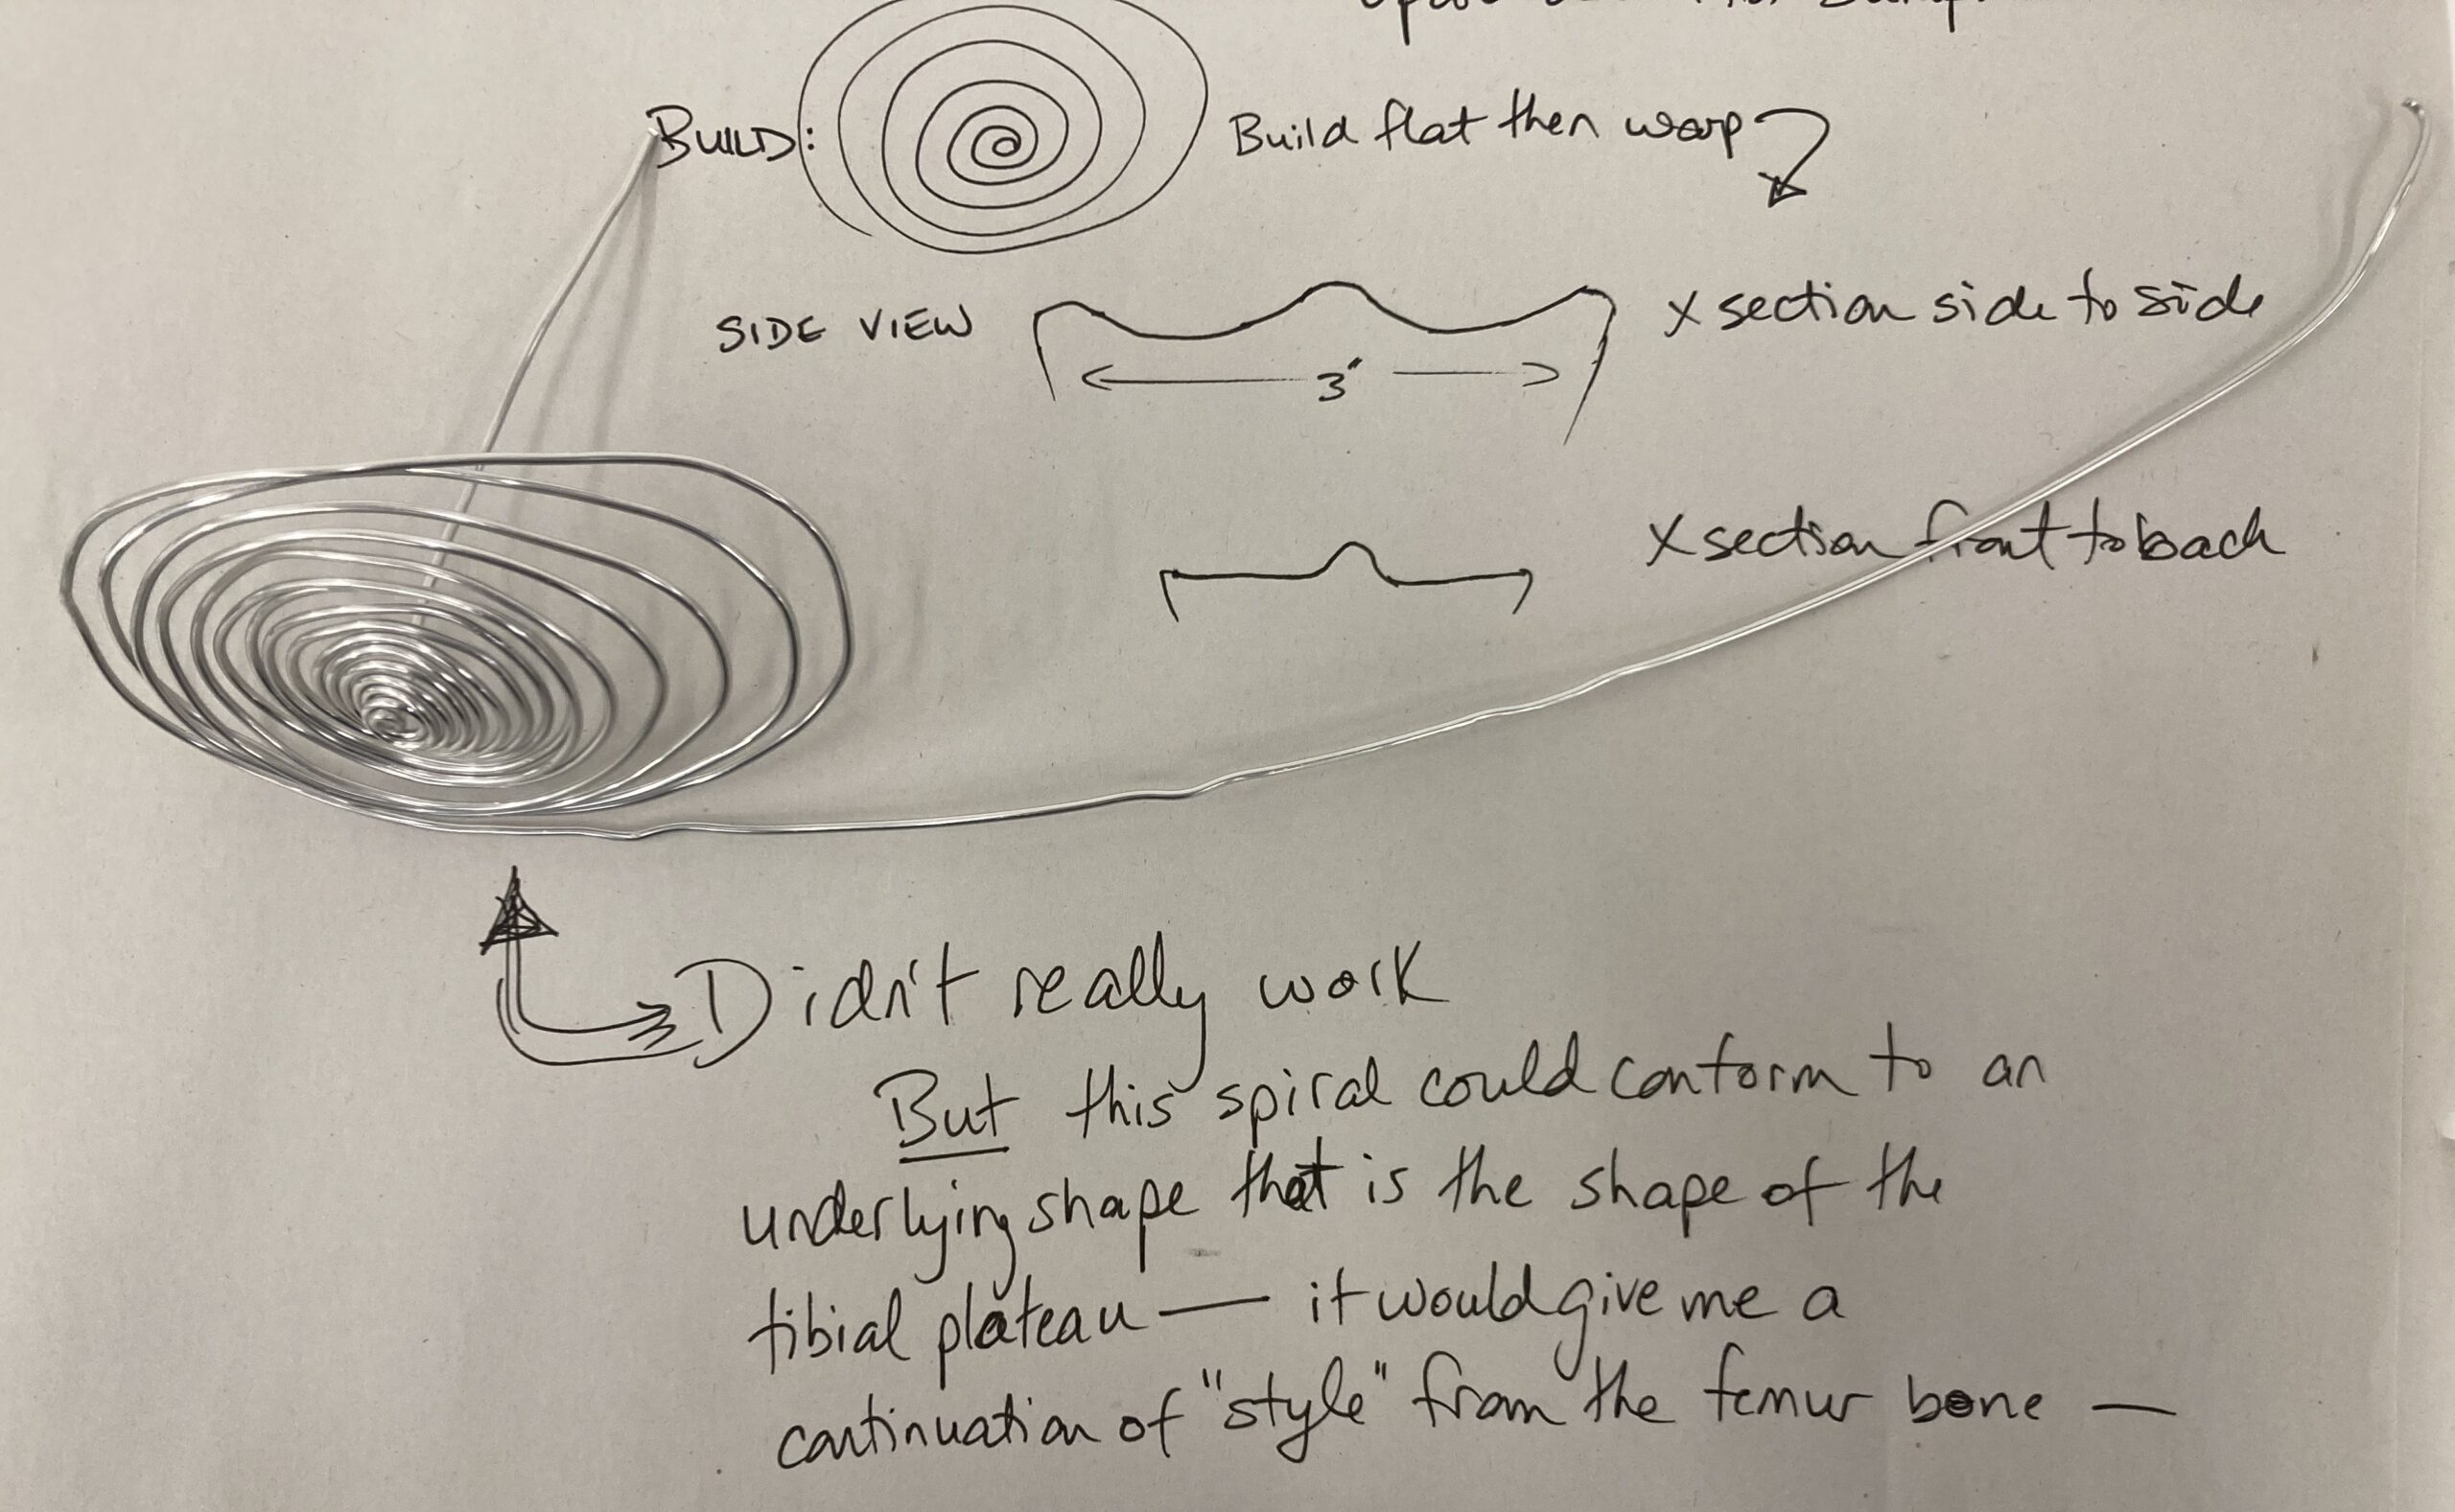 BUILD: Build flat then warp
SIDE VIEW
X section side to side
3"
X section front to back
Didn't really work
But this spiral could conform to an
underlying shape that is the shape of the
tibial plateau — it would give me a
continuation of "style" from the femur bone —